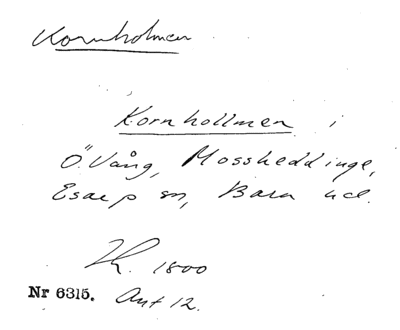 Kornholmen
Kornhollmen i
Ö Vång, Mossheddinge,
Esarp sn, Bara hd.
1800
Nr 6315. Akt 12.